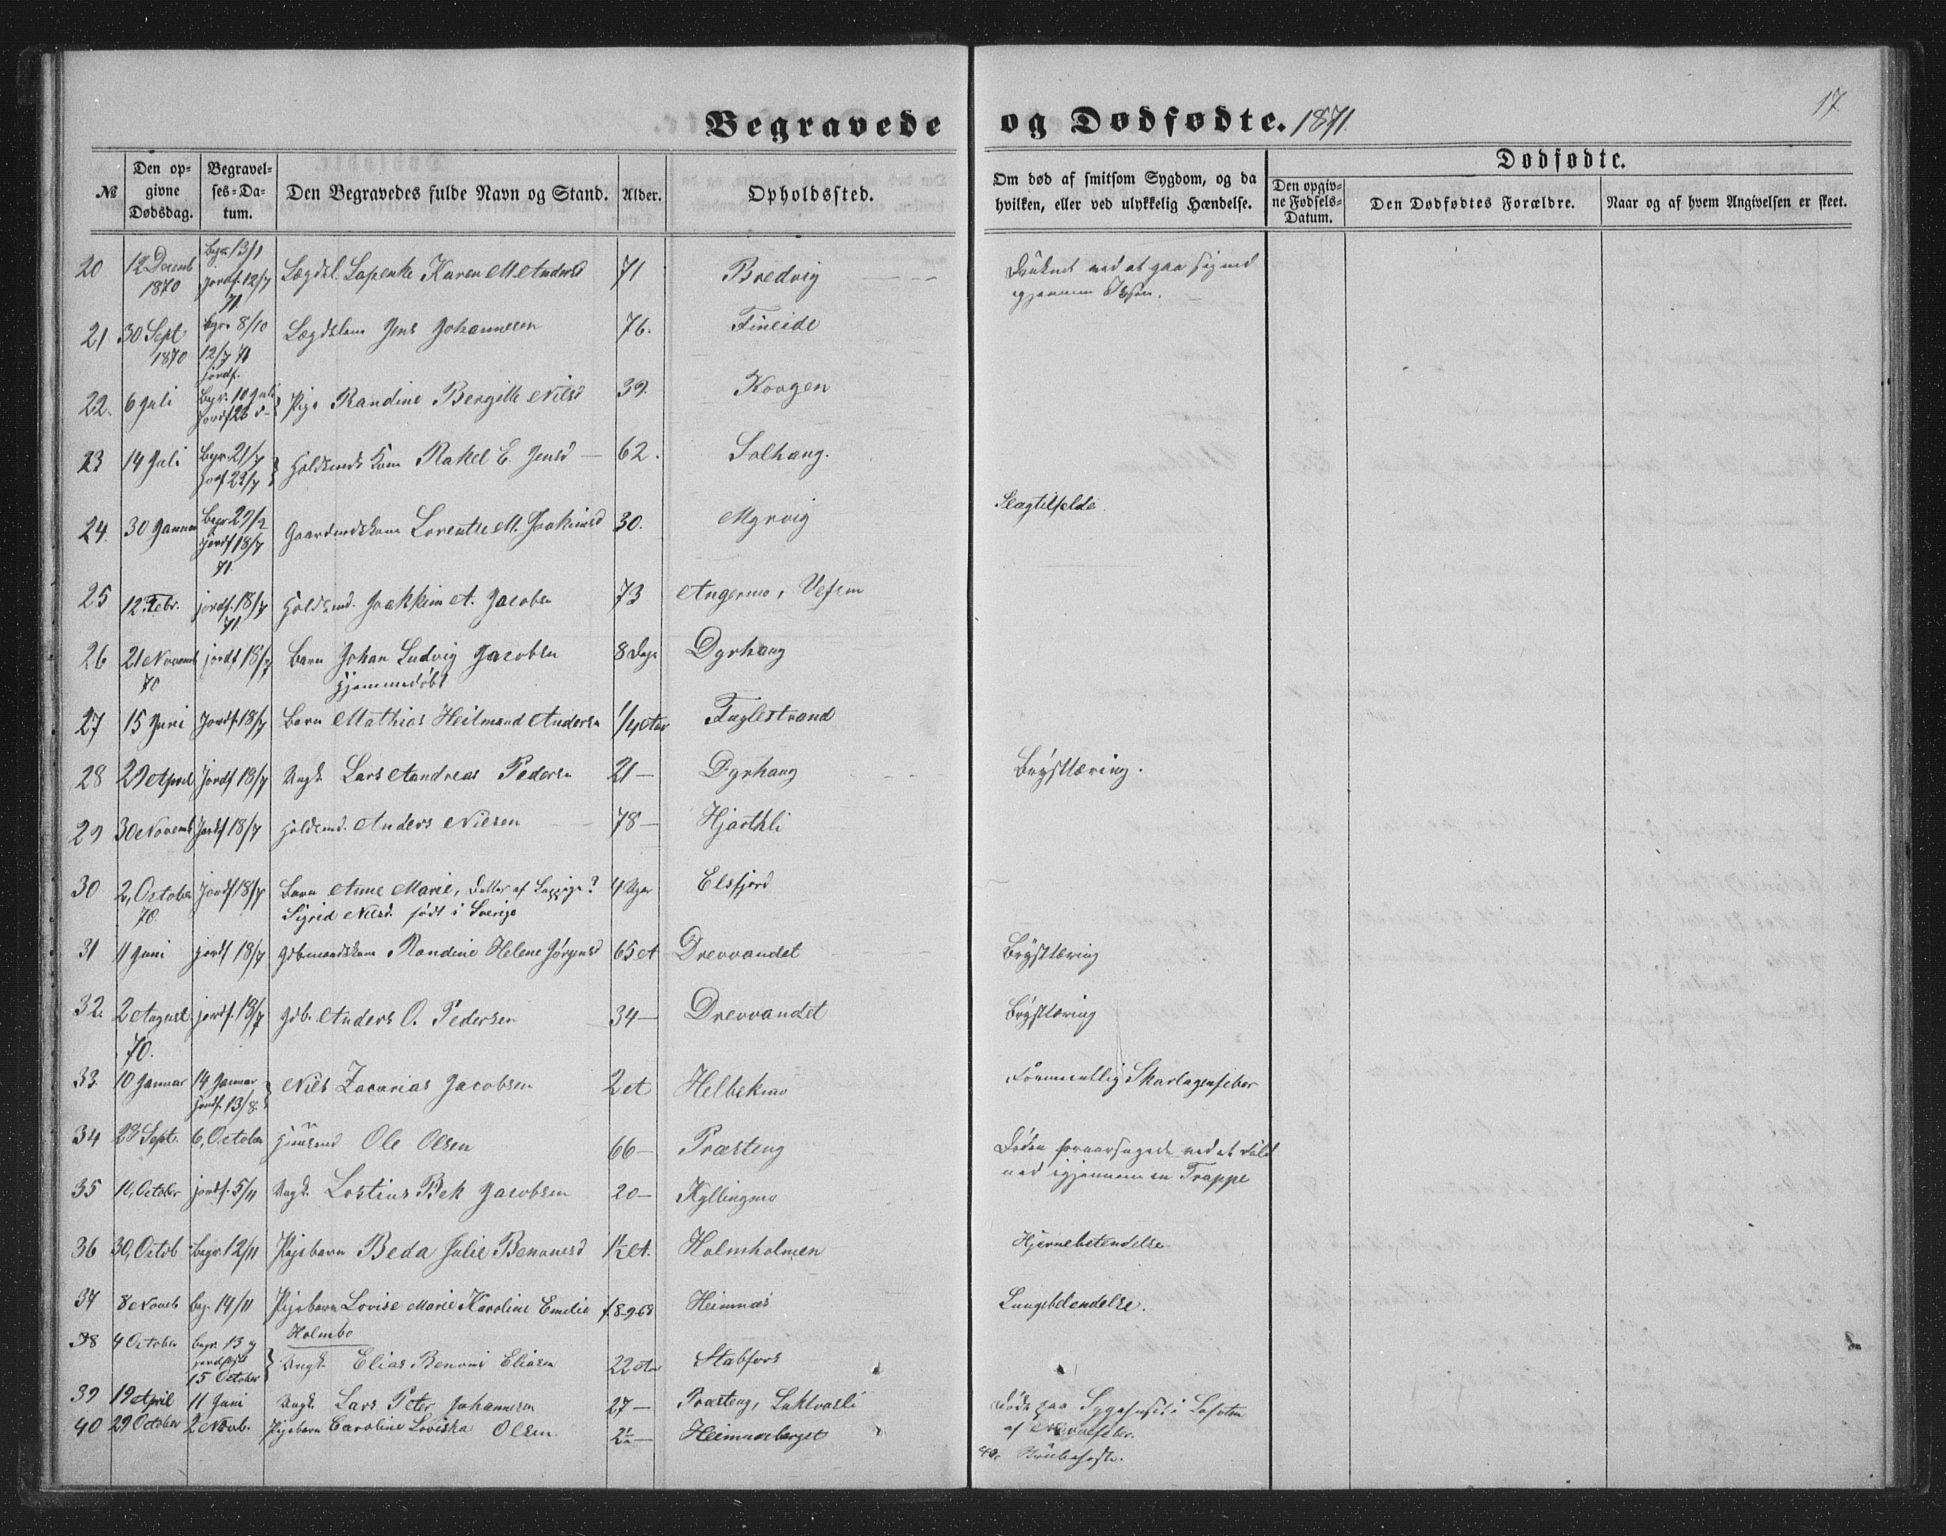 Begravede og Dødfødte. 1871. 17
Dødfødte.
№ Den opgivne Dødsdag. Begravelses-Datum. Den Begravedes fulde Navn og Stand. Alder. Opholdssted. Om død af smitsom Sygdom, og da hvilken, eller ved ulykkelig Hændelse. Den opgivne Fødsels-Datum. Den Dødfødtes Forældre. Naar og af hvem Angivelsen er skeet.
20 12 Decemb 1870 begr 13/1 jordf. 12/7 71 Lægdsl. Karen M. Andersd 71 Bredvig ned at gaa sig ned igjennem
21 30 Sept 1870 begr. 8/10 12/7 71 jordf. Lægdslem Jens Johannesen 76. Fineide
22. 6 Juli Begr. 10 Juli jordf 26 d- Pige Randine Bergitte Nilsd 39. Korgen
23 14 Juli Begr 21/7 jordf 22/7 Holdsmds Kone Rakel E. Jensd 62. Solhaug.
24. 30 Januar Begr 27/2 jordf 18/7 71. Gaardmdskone Lorentse M. Joakimsd 30. Myrvig Slagtilfelde.
25 12 Febr. jordf. 18/7 71 Holdsmd. Joakkim A. Jacobsen 73 Angermo, Vefsen
26 21 Novemb 70 jordf 18/7 Barn Johan Ludvig Jacobsen hjemmedøbt 8 Dage Dyrhaug
27 15 Juni jordf. 18/7 Barn Mathias Heitmand Andersen 1/4 Aar Fuglestrand
28 29 April jordf 18/7 Ungk. Lars Andreas Pedersen 21 — Dyrhaug Brysttæring.
29 30 Novemb jordf 18/7 Holdsmd. Anders Nilsen 78 — Hjartkli
30 2, October 70. jordf 18/7 Barn Anne Marie, Datter af Lappige? Sigrid Nilsd. født i Sverige 4 Uger Elsfjord
31 11 Juni jordf 18/7 Gbmandskone Randine Helene Jørgensd 65 A Drevvandet Brysttæring
32. 2 August 70. jordf. 18/7 Gdb. Anders O. Pedersen 34 — Drevvandet Brysttæring
33. 10 Januar 14 Januar jordf. 13/8. Nils Zacarias Jacobsen 2 A Helbekmo Formentlig Skarlagenfeber
34 28 Sept. 6, October Huusmd Ole Olsen 66 — Præsteng Døden foraarsagede ved at falde ned igjennem en Trappe
35 10, October jordf. 5/11 Ungk. Lostius Bek Jacobsen 20 — Kyllingmo
36 30, Octob begr. 12/11 Pigebarn Beda Julie Benonisd 1½ A. Holmholmen Hjernebetendelse
37 8 Novrb beg. 14/11 Pigebarn Lovise Marie Karoline Emilie Holmbo f. 8-9-68 Heimnæs Lungebetendelse.
38 4 October begr. 13 og jordfæst 15 October Ungk. Elias Benoni Eliasen 22 Aar Stabfors
39 19 April 11 Juni Ungk. Lars Peter Johannesen 27 — Præsteng, Luktvasli Døde paa Sygehuset i Lofoten af Nervefeber.
40 29 October 2 Novb. Pigebarn Caroline Loviska Olsen 2½ — Heimnesberget 40.